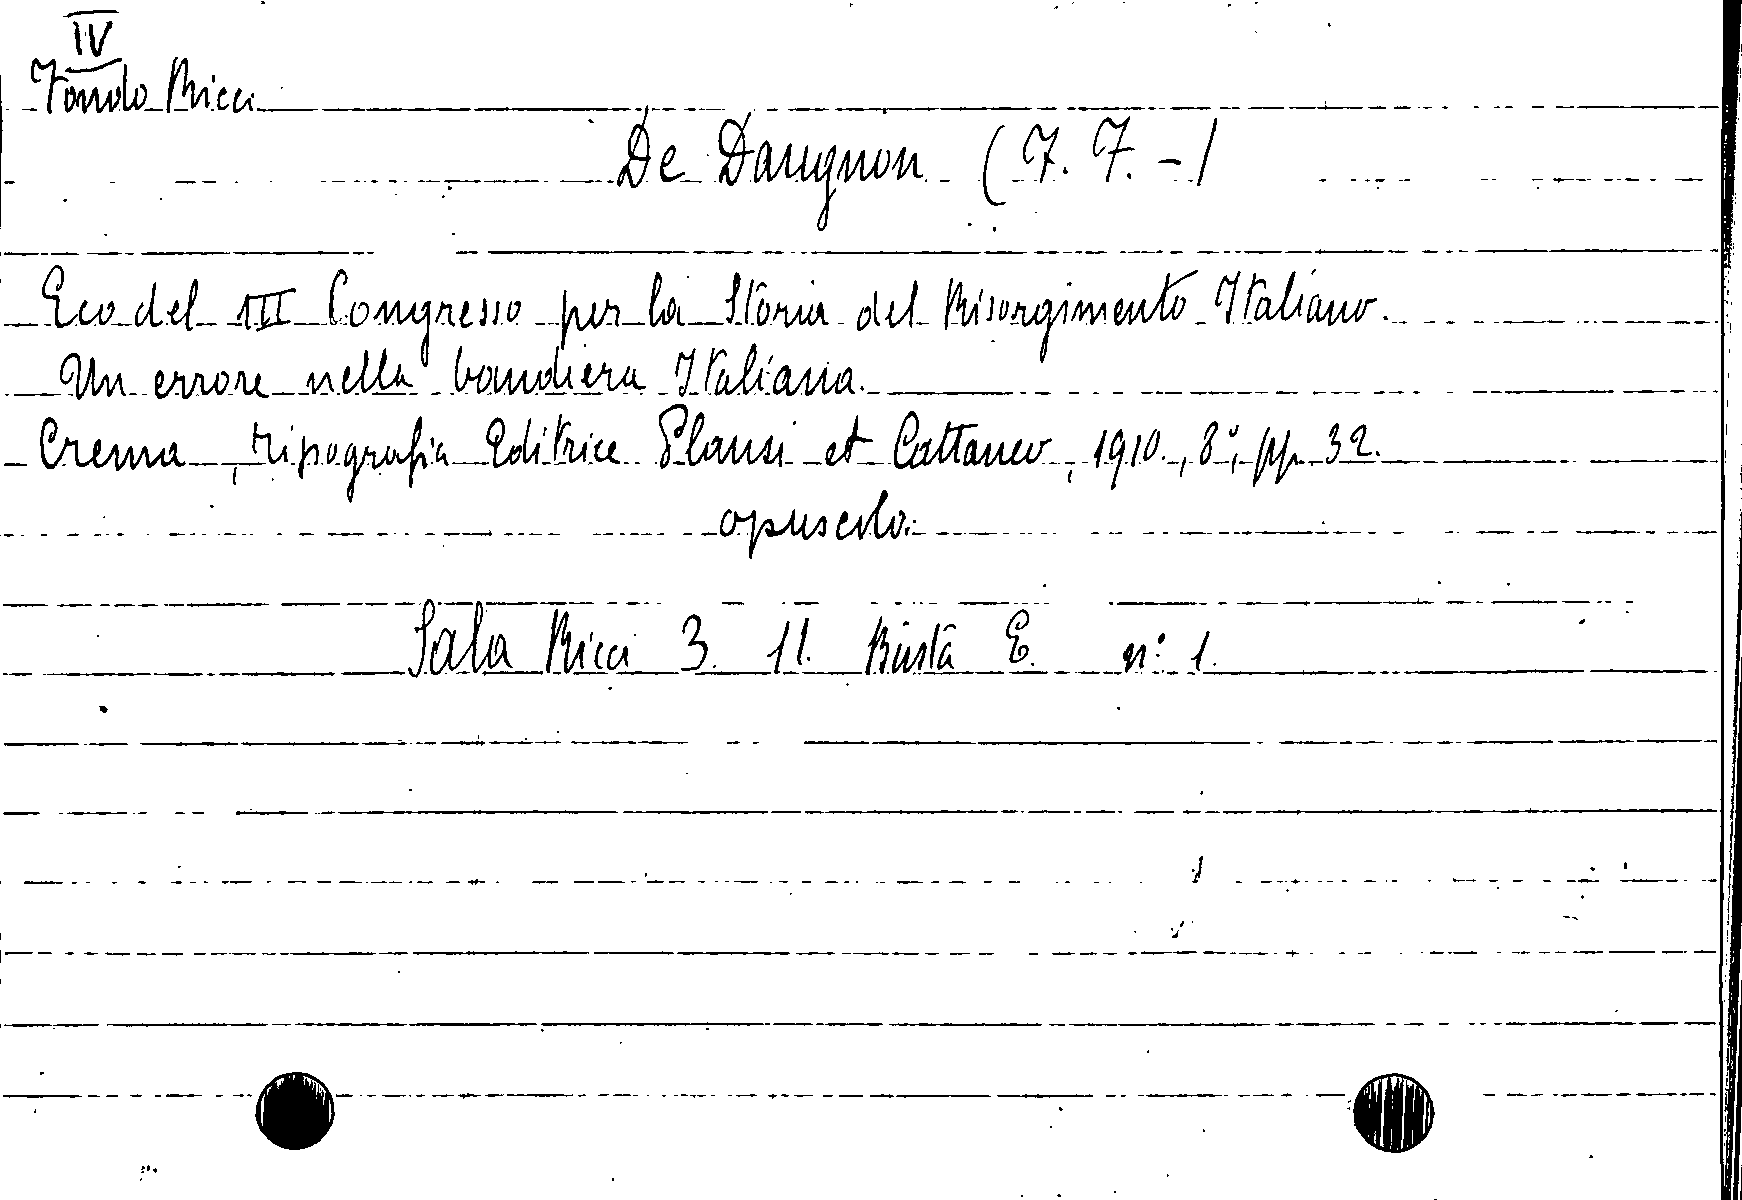 IV
Fondo Ricci
De Daugnon (F. F. -)
Eco del III Congresso per la Storia del Risorgimento Italiano.
Un errore nella bandiera Italiana.
Crema, Tipografia Editrice Plausi et Cattaneo, 1910., 8°, pp. 32.
opuscolo.
Sala Ricci 3. 11. Busta E. n° 1.